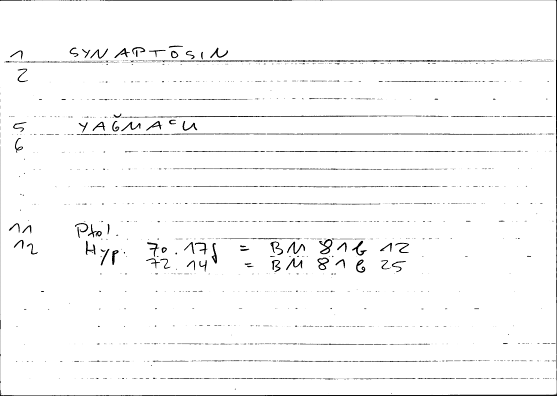 1 SYNAPTŌSIN
2
5 YAĞMACU
6
11 Ptol.
12 Hyp. 70.17f = BM 81b 12
72.14 = BM 81b 25